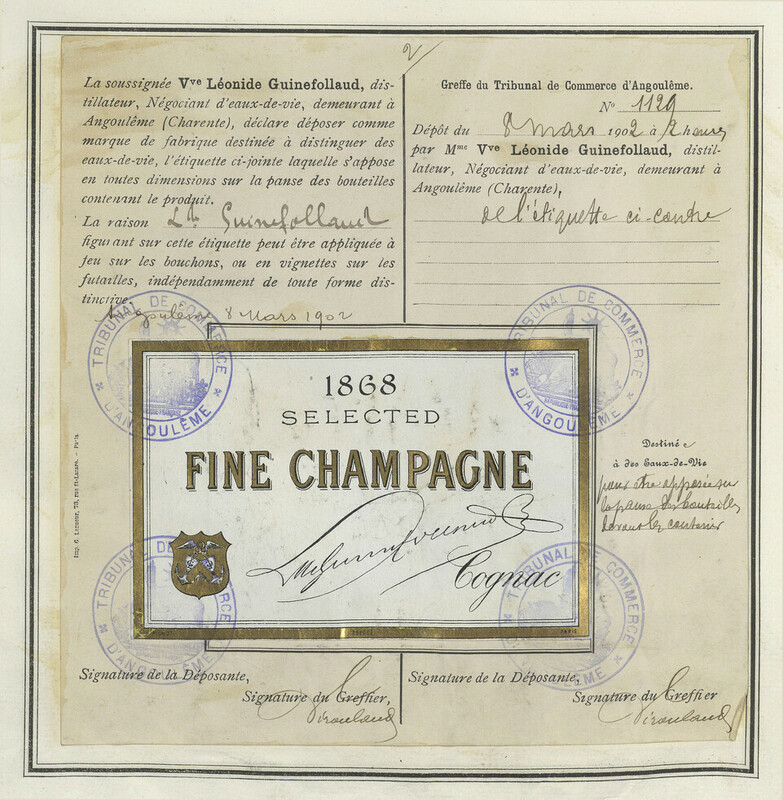 2/
La soussignée Vve Léonide Guinefollaud, dis-
tillateur, Négociant d'eaux-de-vie, demeurant à
Angoulême (Charente), déclare déposer comme
marque de fabrique destinée à distinguer des
eaux-de-vie, l'étiquette ci-jointe laquelle s'appose
en toutes dimensions sur la panse des bouteilles
contenant le produit.
La raison Ld Guinefollaud
figurant sur cette étiquette peut être appliquée à
feu sur les bouchons, ou en vignettes sur les
futailles, indépendamment de toute forme dis-
tinctive.
Angoulême 8 Mars 1902
Greffe du Tribunal de Commerce d'Angoulême.
No 1129
Dépôt du 8 mars 1902 à 2 heures
par Mme Vve Léonide Guinefollaud, distil-
lateur, Négociant d'eaux-de-vie, demeurant à
Angoulême (Charente),
de l'étiquette ci-contre
TRIBUNAL DE COMMERCE D'ANGOULÊME
TRIBUNAL DE COMMERCE D'ANGOULÊME
1868
SELECTED
FINE CHAMPAGNE
Cognac
PARIS
Destinée
à des Eaux-de-Vie
pour être apposée sur
la panse des bouteilles
devant les contenir
TRIBUNAL DE COMMERCE D'ANGOULÊME
TRIBUNAL DE COMMERCE D'ANGOULÊME
Signature de la Déposante,
Signature du Greffier,
Signature de la Déposante,
Signature du Greffier